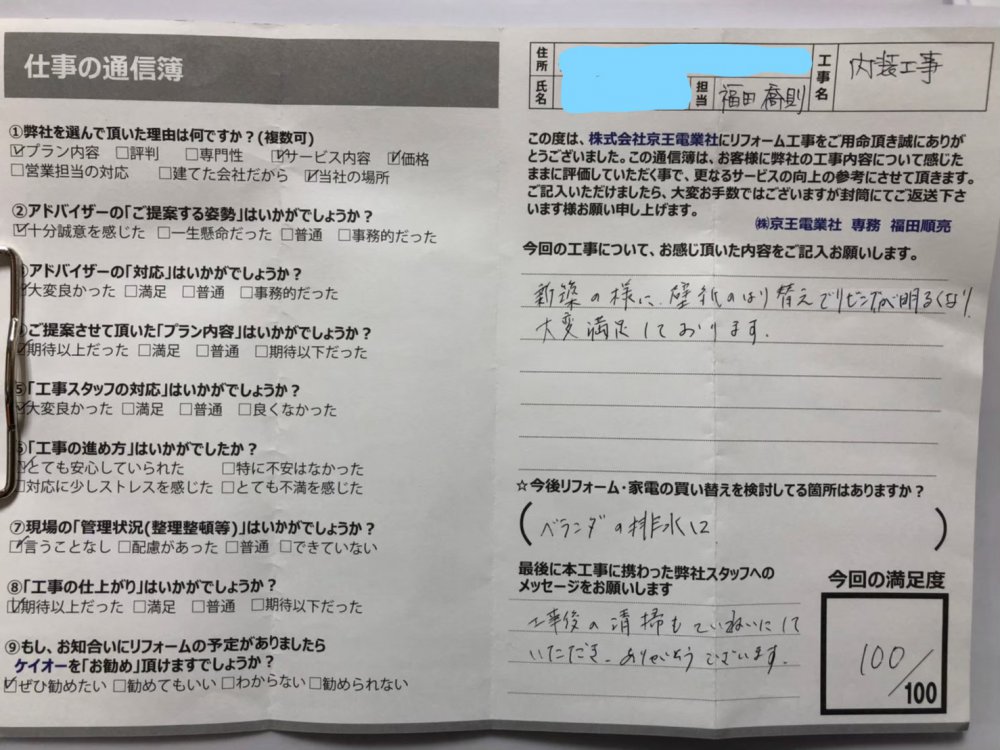 仕事の通信簿
①弊社を選んで頂いた理由は何ですか？(複数可)
☑プラン内容 □評判 □専門性 ☑サービス内容 ☑価格
□営業担当の対応 □建てた会社だから ☑当社の場所
②アドバイザーの「ご提案する姿勢」はいかがでしょうか？
☑十分誠意を感じた □一生懸命だった □普通 □事務的だった
アドバイザーの「対応」はいかがでしょうか？
☑大変良かった □満足 □普通 □事務的だった
ご提案させて頂いた「プラン内容」はいかがでしょうか？
☑期待以上だった □満足 □普通 □期待以下だった
⑤「工事スタッフの対応」はいかがでしょうか？
☑大変良かった □満足 □普通 □良くなかった
⑥「工事の進め方」はいかがでしたか？
☑とても安心していられた □特に不安はなかった
□対応に少しストレスを感じた □とても不満を感じた
⑦現場の「管理状況(整理整頓等)」はいかがでしょうか？
☑言うことなし □配慮があった □普通 □できていない
⑧「工事の仕上がり」はいかがでしょうか？
☑期待以上だった □満足 □普通 □期待以下だった
⑨もし、お知合いにリフォームの予定がありましたら
ケイオーを「お勧め」頂けますでしょうか？
☑ぜひ勧めたい □勧めてもいい □わからない □勧められない
住所
氏名
担当 福田 喬則
工事名 内装工事
この度は、株式会社京王電業社にリフォーム工事をご用命頂き誠にありが
とうございました。この通信簿は、お客様に弊社の工事内容について感じた
ままに評価していただく事で、更なるサービスの向上の参考にさせて頂きます。
ご記入いただけましたら、大変お手数ではございますが封筒にてご返送下さ
います様お願い申し上げます。
㈱京王電業社 専務 福田順亮
今回の工事について、お感じ頂いた内容をご記入お願いします。
新築の様に、壁紙のはり替えでリビングが明るくなり、
大変満足しております。
☆今後リフォーム・家電の買い替えを検討してる箇所はありますか？
(ベランダの排水口)
最後に本工事に携わった弊社スタッフへの
メッセージをお願いします
工事後の清掃もていねいにして
いただき、ありがとうございます。
今回の満足度
100/100